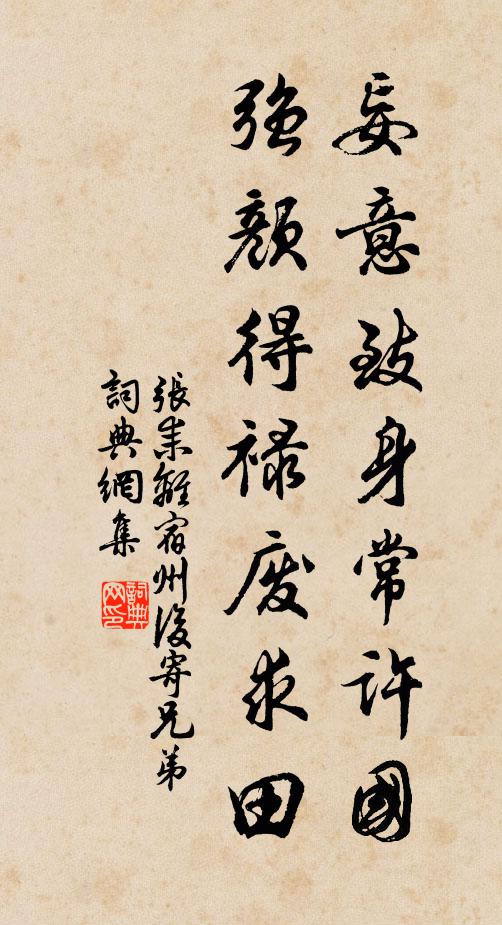 妄意致身常許國
強顏得祿廢求田
張耒離宿州後寄兄弟
詞典網集
詞典网印